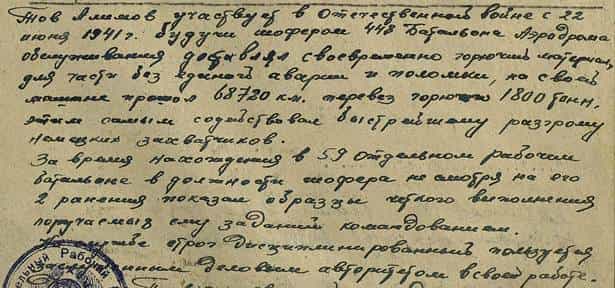 Тов Алимов участвует в Отечественной войне с 22
июня 1941 г. будучи шофером 448 Батальона Аэродрома
обслуживания доставлял своевременно горючий материал,
для части без единой аварии и поломки, на своей
машине прошол 68720 км. перевез горючи 1800 тонн.
этим самым содействовал быстрейшему разгрому
немецких захватчиков.
За время нахождения в 59 отдельном рабочим
батальоне в должности шофера не смотря на его
2 ранения показал образцы четкого выполнения
поручаемых ему заданий командованием.
службе строг дисциплинированный пользуется
деловым авторитетом в своей работе.
Рабочий